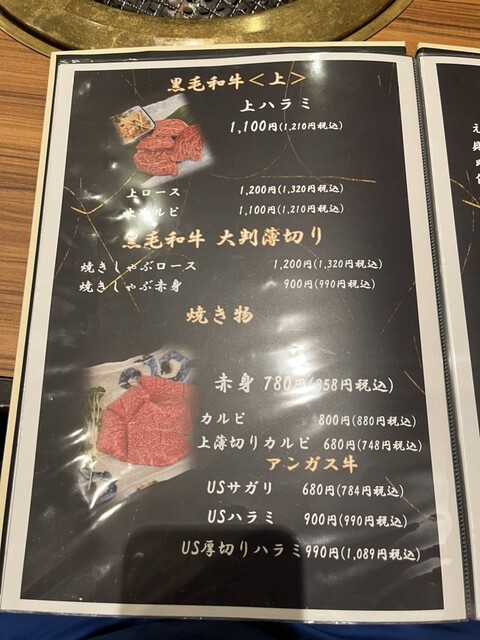 黒毛和牛＜上＞
上ハラミ
1,100円(1,210円税込)
上ロース 1,200円(1,320円税込)
カルビ 1,100円(1,210円税込)
黒毛和牛 大判薄切り
焼きしゃぶロース 1,200円(1,320円税込)
焼きしゃぶ赤身 900円(990円税込)
焼き物
赤身 780円(858円税込)
カルビ 800円(880円税込)
上薄切りカルビ 680円(748円税込)
アンガス牛
USサガリ 680円(784円税込)
USハラミ 900円(990円税込)
US厚切りハラミ 990円(1,089円税込)